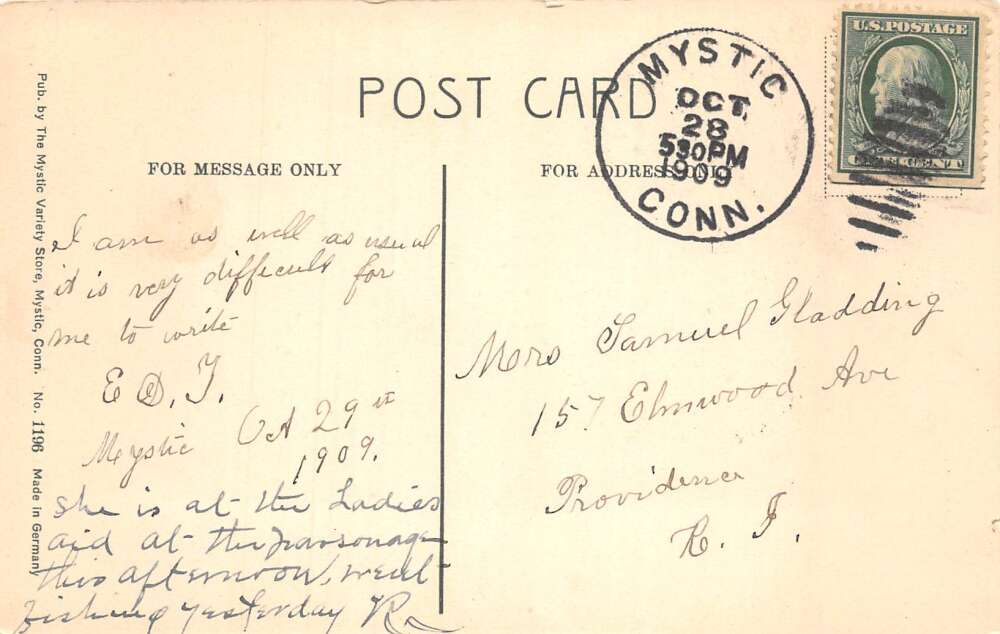 POST CARD
FOR MESSAGE ONLY
FOR ADDRESS ONLY
MYSTIC
OCT.
28
530PM
1909
CONN.
U.S. POSTAGE
Pub. by The Mystic Variety Store, Mystic, Conn. No. 1196 Made in Germany
I am as well as usual
it is very difficult for
me to write
E D. T.
Mystic Oct 29
1909.
she is at the Ladies
aid at the parsonage
this afternoon, went
fishing yesterday
Mrs Samuel Gladding
157 Elmwood Ave
Providence
R. I.